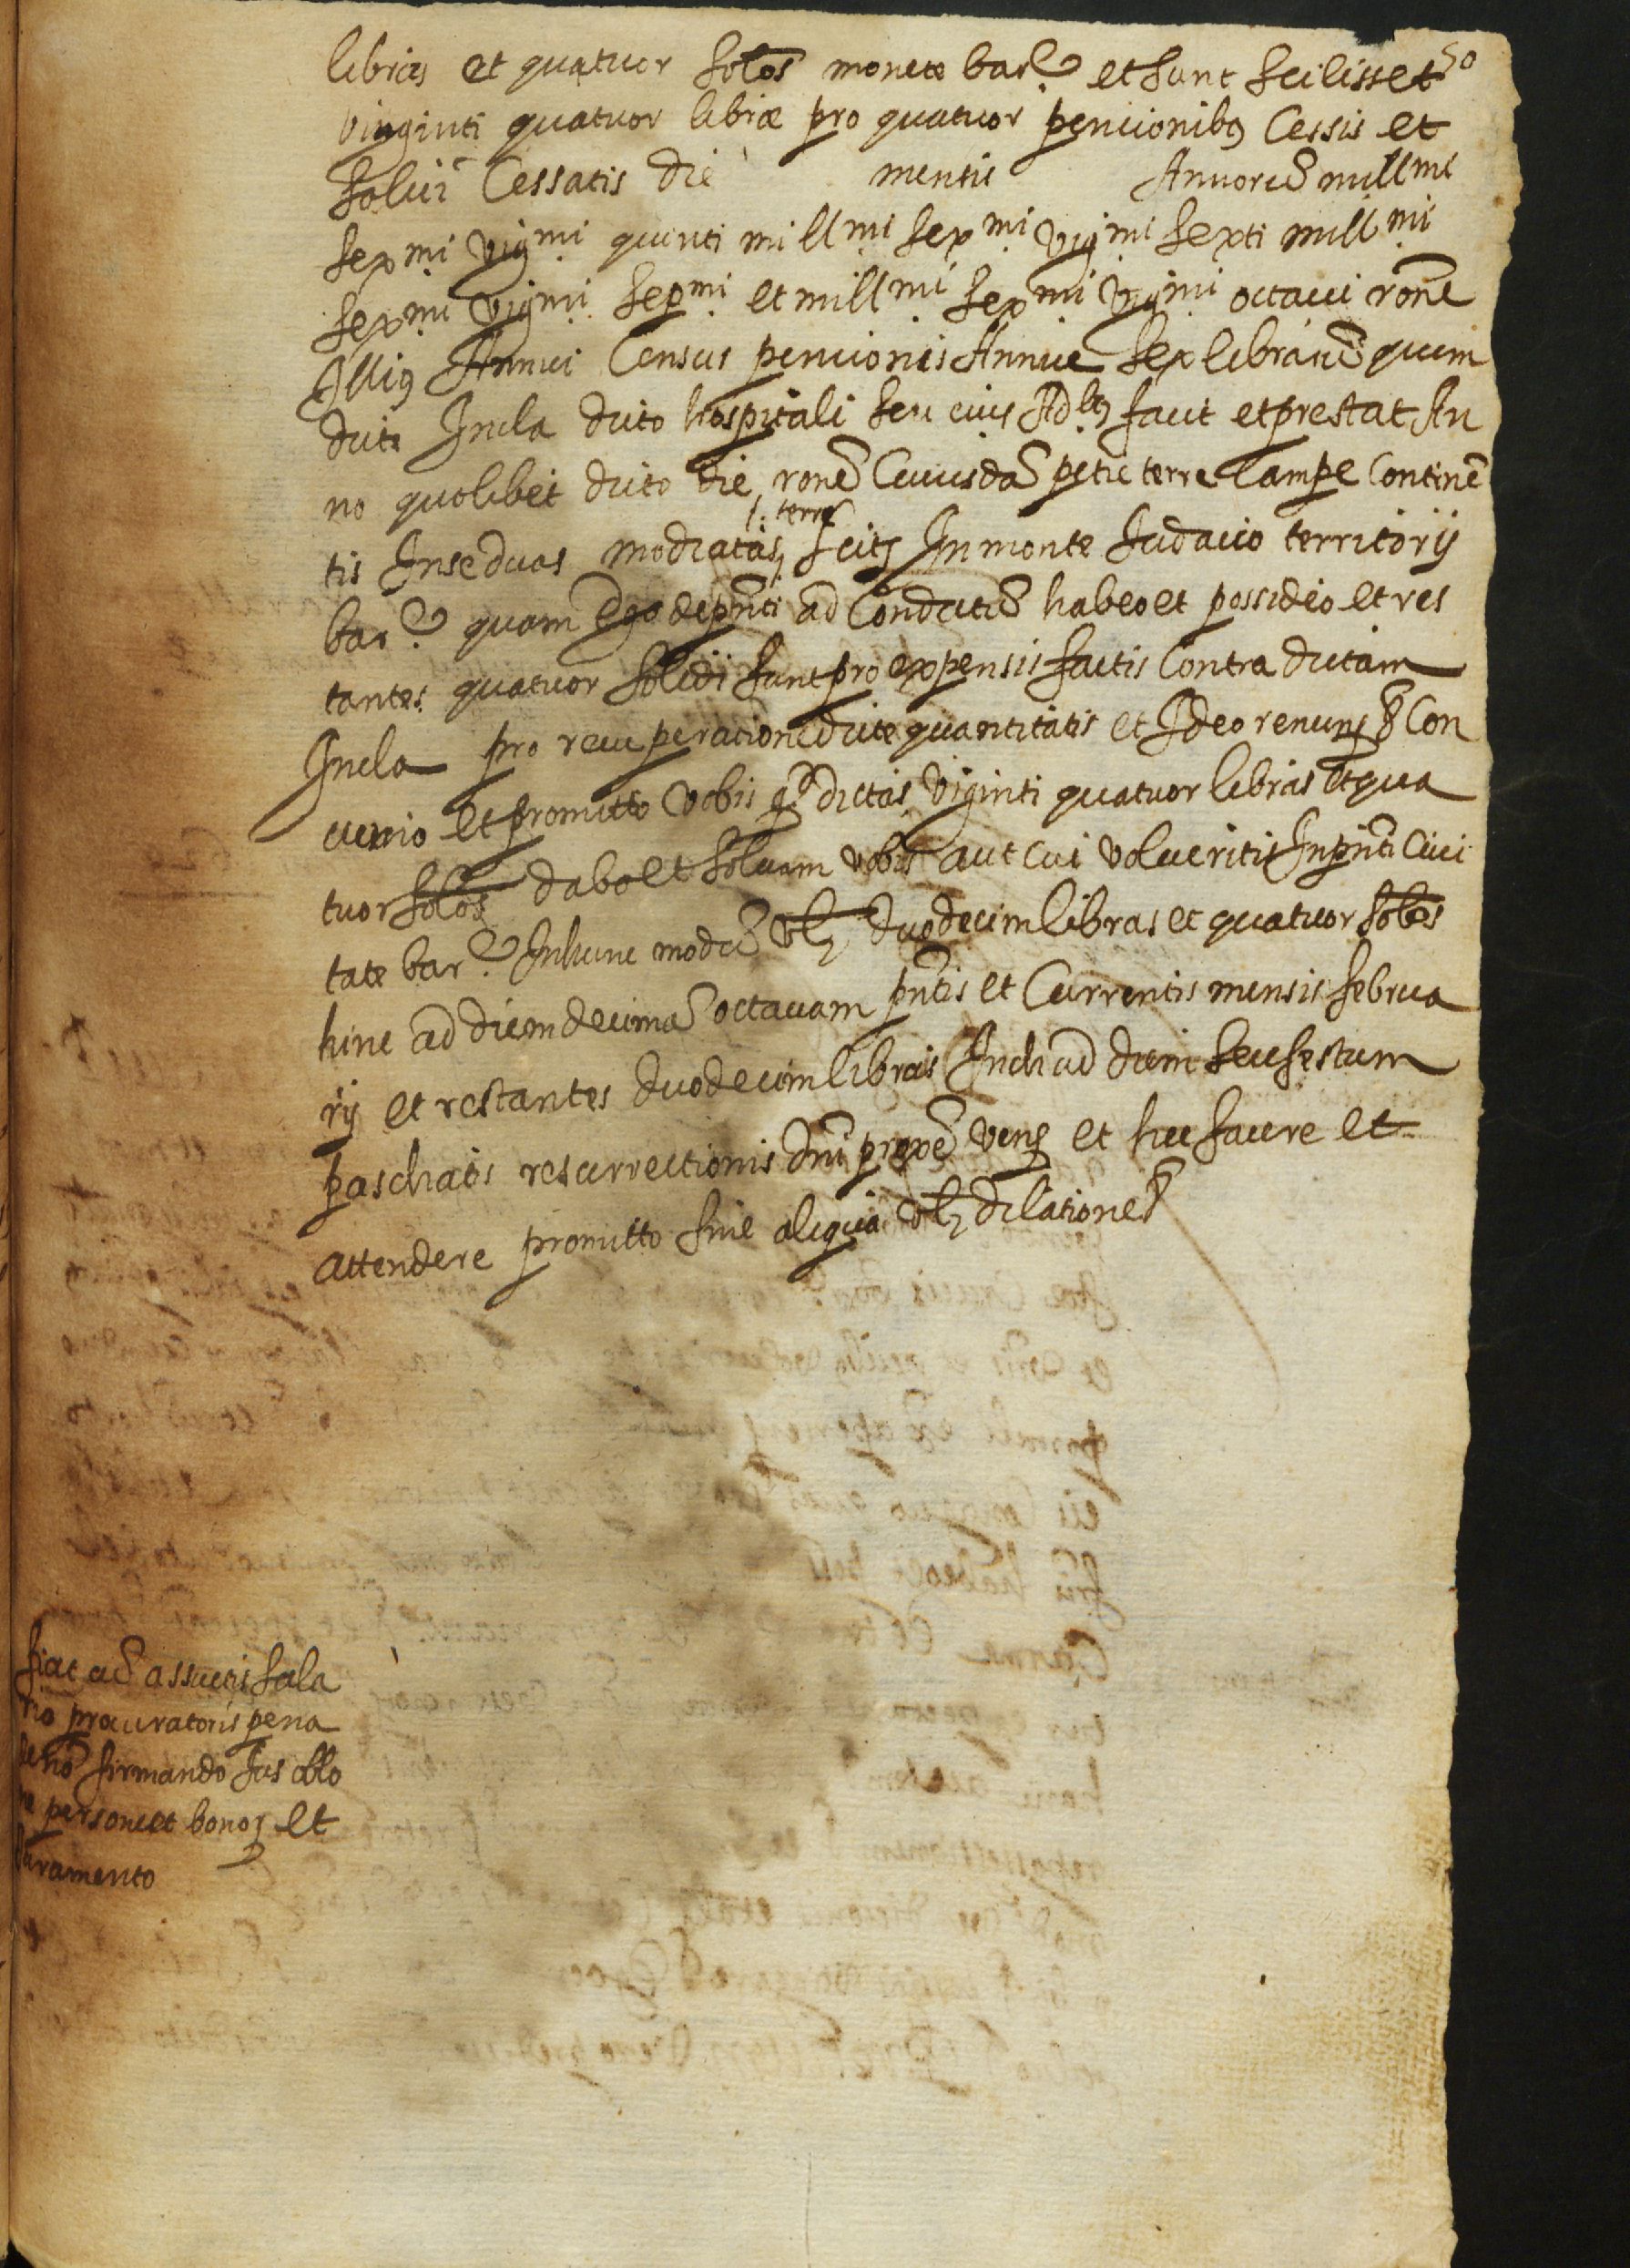 50
libras et quatuor solōs monete barᵉ et sunt scilisset
vinginti quatuor libræ pro quatuor pencionibꝫ Cessis et
solvi Cessatis die mensis Annorū mill.mi
sex.mi vig.mi quinti mill.mi sex.mi vig.mi sexti mill.mi
sex.mi vig.mi sep.mi et mill.mi sex.mi vig.mi octaui rōne
Illiꝰ Annui Census pencionis Annue sex librarū quem
dicta Incla dicto hospitali seu eius Ad.bꝫ facit et prestat An
no quolibet dicto die, ronē Cuiusdā petie terre Campe Continē
tis In se duas modiatas, terre scitꝫ In monte Judaico territorij
barᵉ quam Ego de pnti ad Conductū habeo et possideo et res
tantes quatuor solidi sunt pro expensis factis Contra dictam
Incla pro recuperatione dicte quantitatis et Ideo renunꝫ Con
uenio et promitto vobis qᵈ dictas viginti quatuor libras et qua
tuor solōs dabo et soluam vobis aut cui volueritis In pnti Ciui
tate barᵉ In hunc modū vꝫ duodecim libras et quatuor solos
hinc ad diem decimā octauam pntis et Currentis mensis februa
rij et restantes duodecim libras Inde ad diem seu festum
paschatis resurrectionis dni proxē venꝫ et hec facere et
attendere promitto sine aliqua vꝫ dilatione
fiat ad assuetis sala
rio procuratoris pena
firmando Jus oblo
persone et bonoꝝ et
Juramento